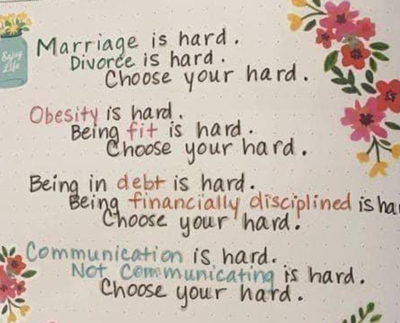 Enjoy
Life
Marriage is hard.
Divorce is hard.
Choose your hard.
Obesity is hard.
Being fit is hard.
Choose your hard.
Being in debt is hard.
Being financially disciplined is ha
Choose your hard.
Communication is hard.
Not Communicating is hard.
Choose your hard.